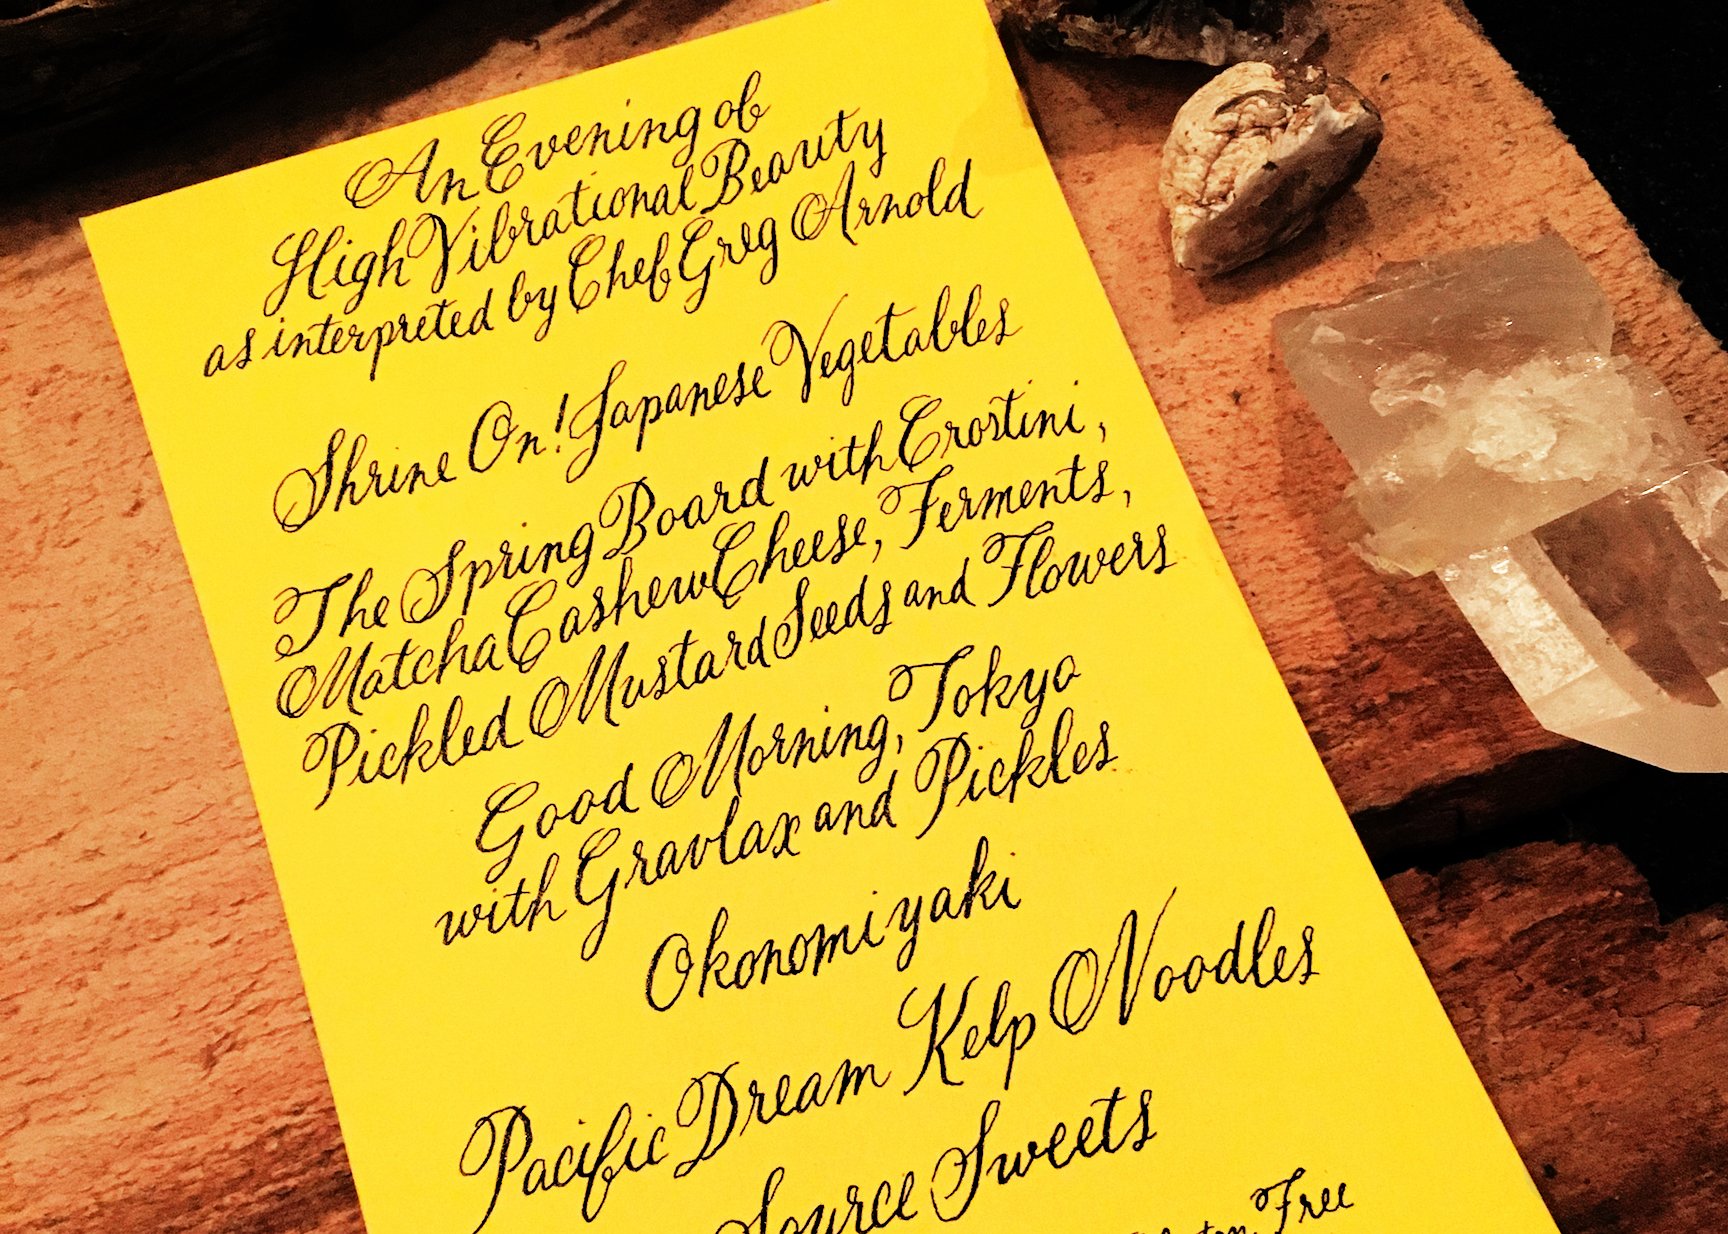 An Evening of
High Vibrational Beauty
as interpreted by Chef Greg Arnold
Shrine On! Japanese Vegetables
The Spring Board with Crostini,
Matcha Cashew Cheese, Ferments,
Pickled Mustard Seeds and Flowers
Good Morning, Tokyo
with Gravlax and Pickles
Okonomiyaki
Pacific Dream Kelp Noodles
Source Sweets
Free